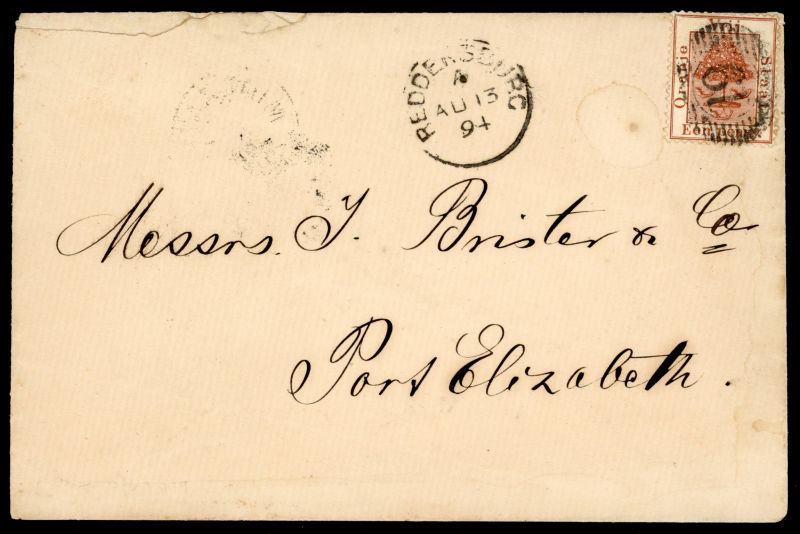 REDDERSBURG
A
AU 13
94
Oranje
Staat
Een Penny
Messrs. J. Brister & Co
Port Elizabeth.